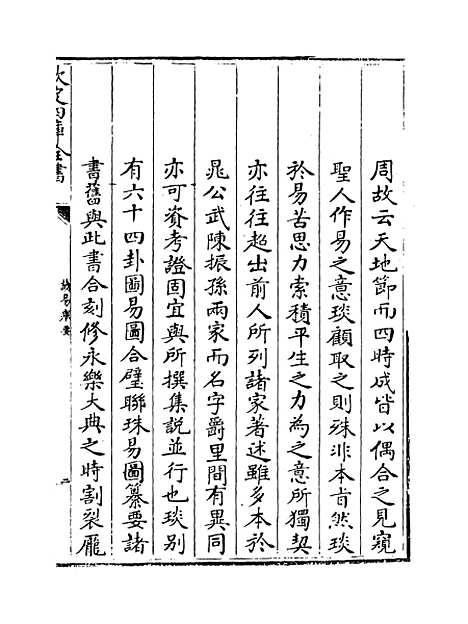 周故云天地節而四時成皆以偶合之見窺
聖人作易之意琰顧取之則殊非本旨然琰
於易苦思力索積平生之力為之意所獨契
亦往往超出前人所列諸家著述雖多本於
晁公武陳振孫兩家而名字爵里間有異同
亦可資考證固宜與所撰集説並行也琰别
有六十四卦圖易圖合璧聯珠易圖纂要諸
書舊與此書合刻修永樂大典之時割裂龎
欽定四庫全書
讀易舉要
二